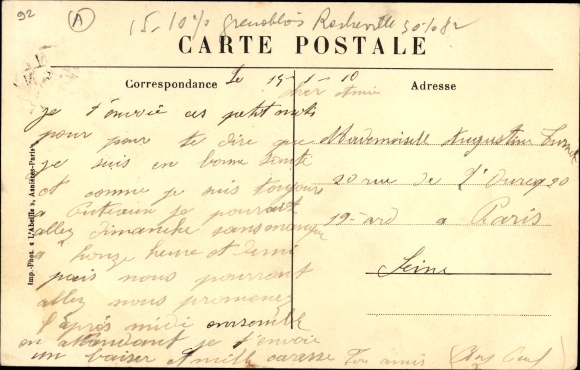 92
A
15-10%
CARTE POSTALE
Correspondance
Adresse
Le 15-1-10
cher Amie
je t'envoie ces petit mots
pour pour te dire que
je suis en bonne santé
et comme je suis toujours
a je pourrait
allez dimanche sans manque
a honze heure et demi
puis nous pourront
allez nous promenez
l'après midi ensemble
en attendant je t'envoie
un baiser et mille caresse
Ton amis
Mademoiselle Augustine
20 rue de l'Ourcq 20
19-ard a Paris
Seine
Imp.-Phot. « L'Abeille », Asnières-Paris